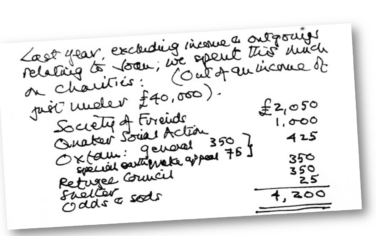 Last year, excluding income & outgoings
relating to Joan, we spent this much
on charities: (Out of an income of
just under £40,000).
Society of Friends £2,050
Quaker Social Action 1,000
Oxfam: general 350 } 425
special earthquake appeal 75
Refugee Council 350
Shelter 350
Odds & sods 25
4,200